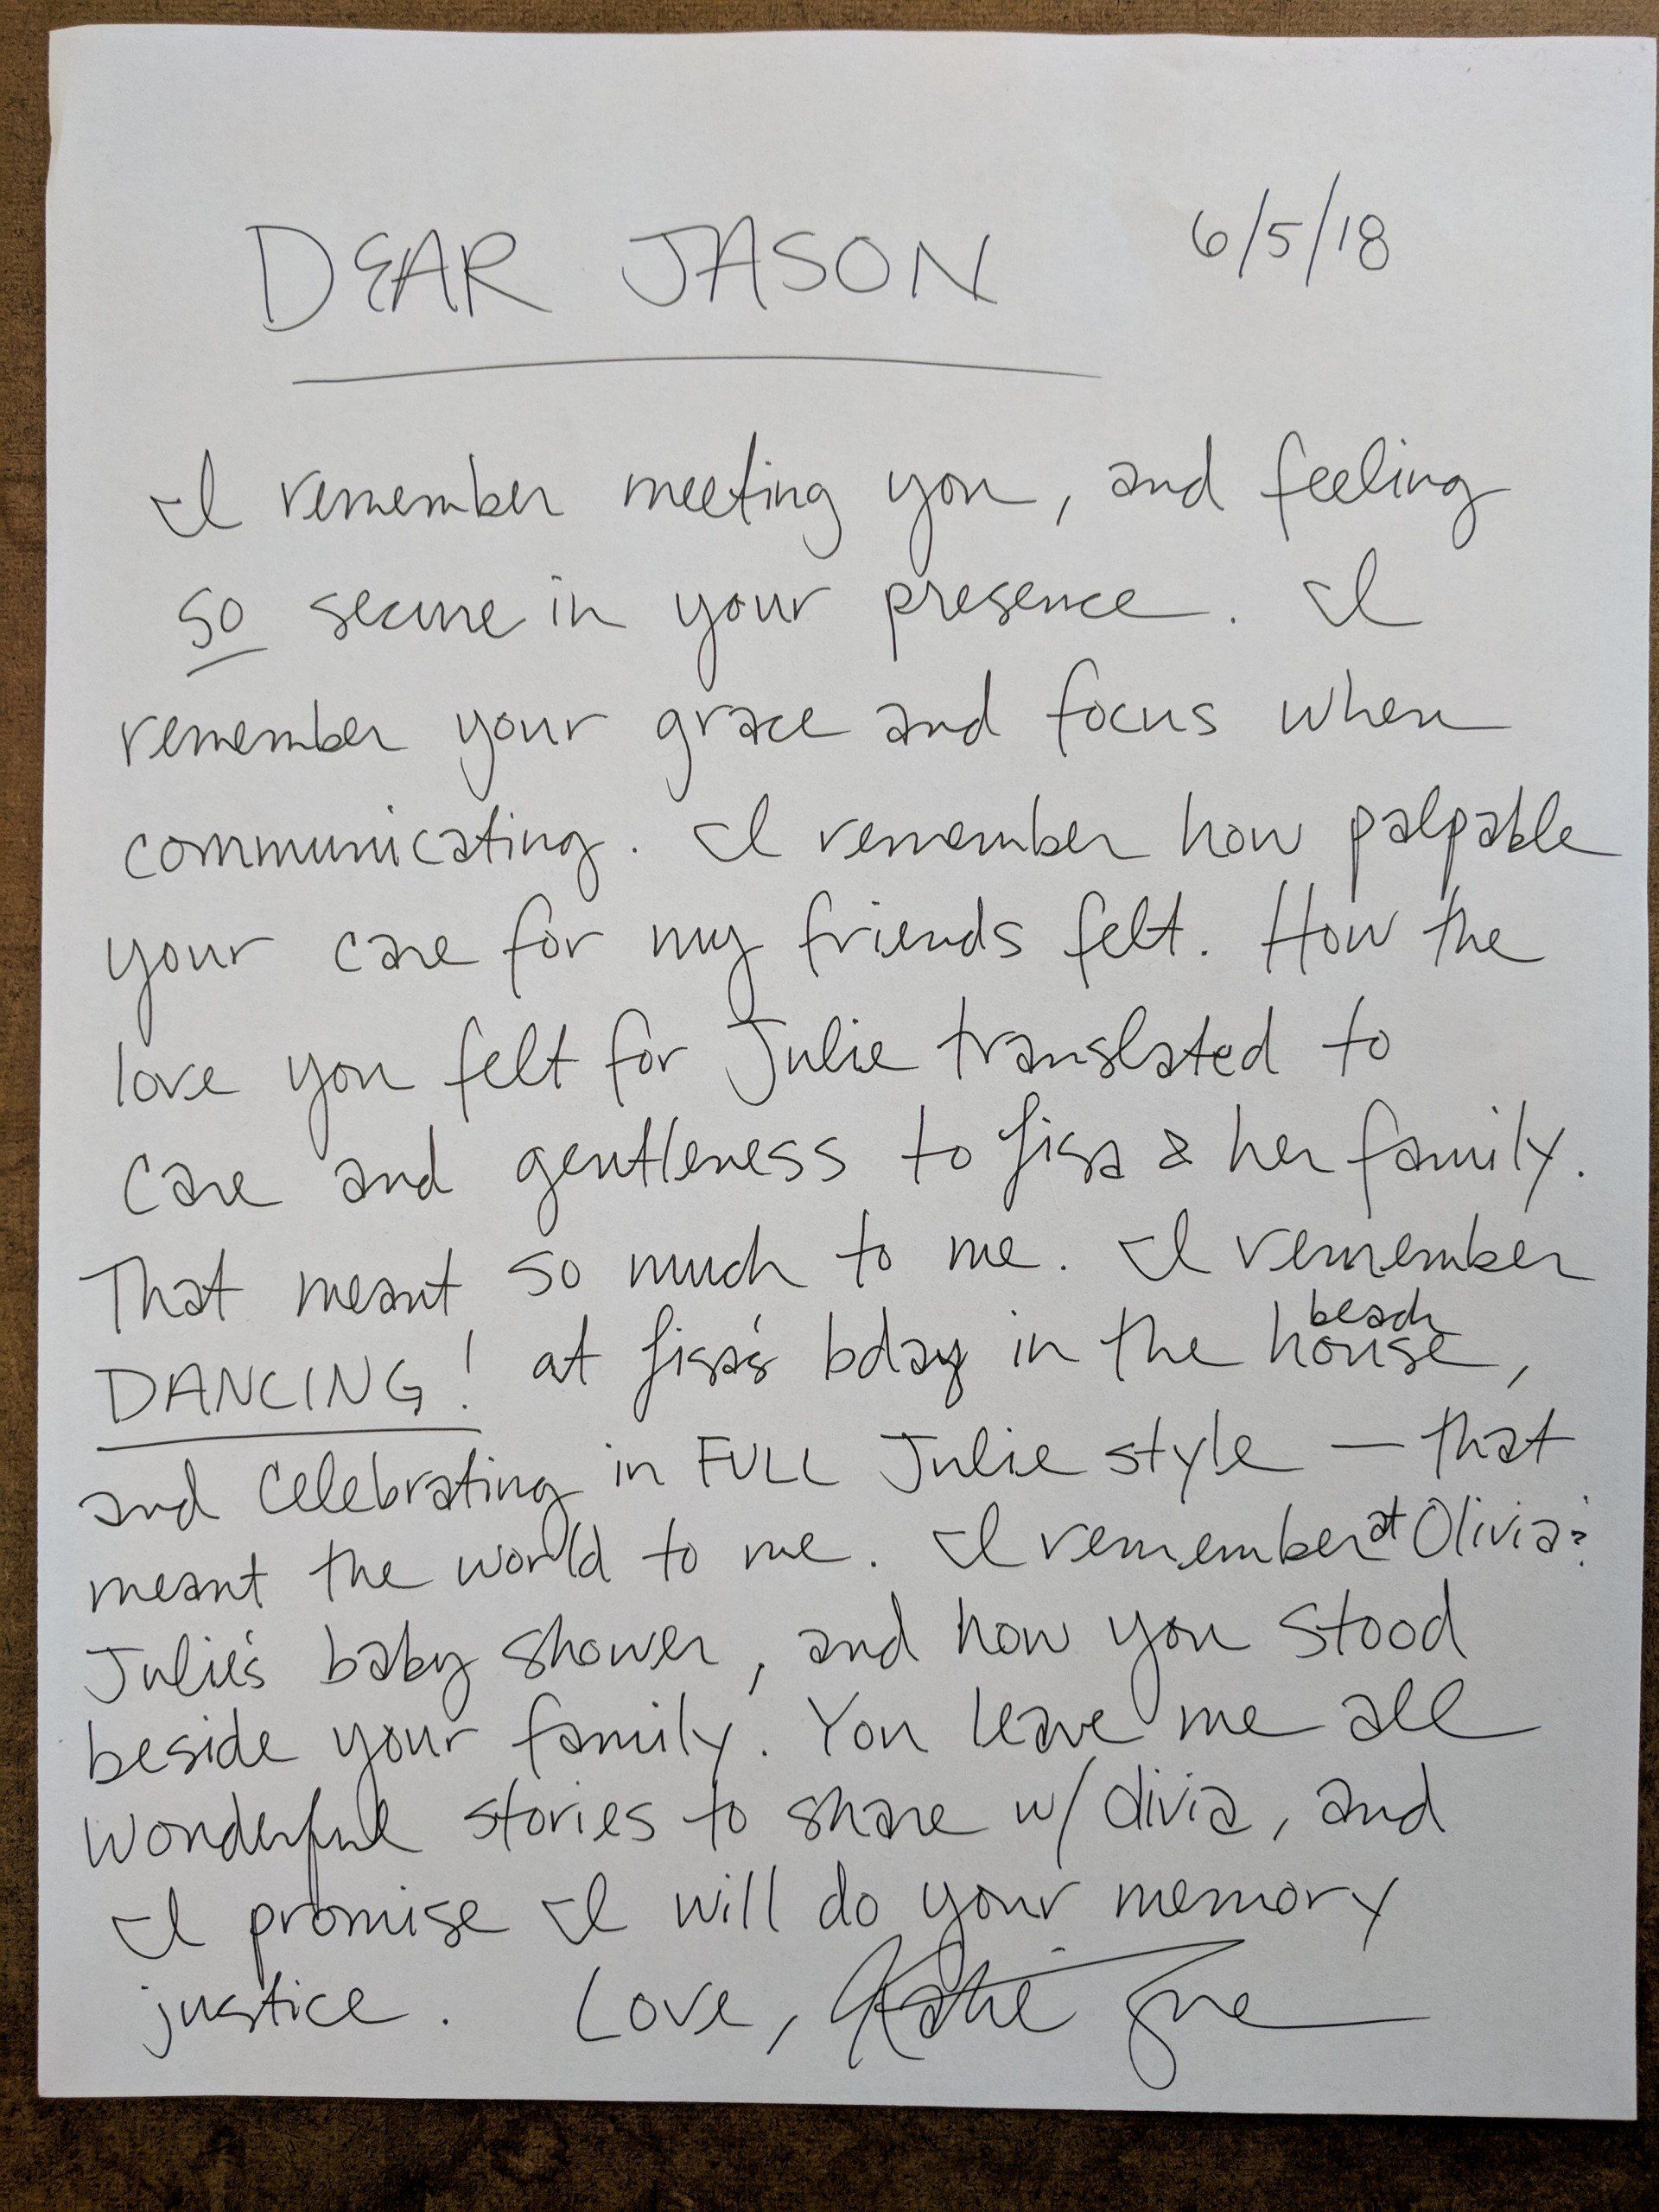 DEAR JASON 6/5/18
I remember meeting you, and feeling
so secure in your presence. I
remember your grace and focus when
communicating. I remember how palpable
your care for my friends felt. How the
love you felt for Julie translated to
care and gentleness to Lisa & her family.
That meant so much to me. I remember
DANCING! at Lisa's bday in the beach house,
and celebrating in FULL Julie style — that
meant the world to me. I remember at Olivia &
Julie's baby shower, and how you stood
beside your family. You leave me all
wonderful stories to share w/ Olivia, and
I promise I will do your memory
justice. Love, Katie Sue